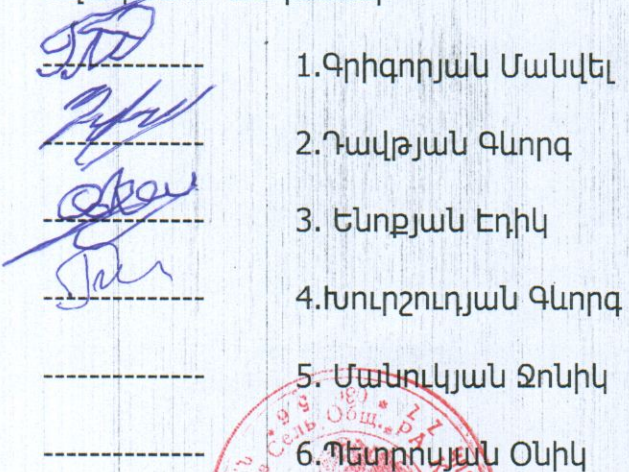 1.Գրիգորյան Մանվել
2.Դավթյան Գևորգ
3. Ենոքյան Էդիկ
4.Խուրշուդյան Գևորգ
5. Մանուկյան Ջոնիկ
Сель. Общ.
6.Պետրոսյան Օնիկ